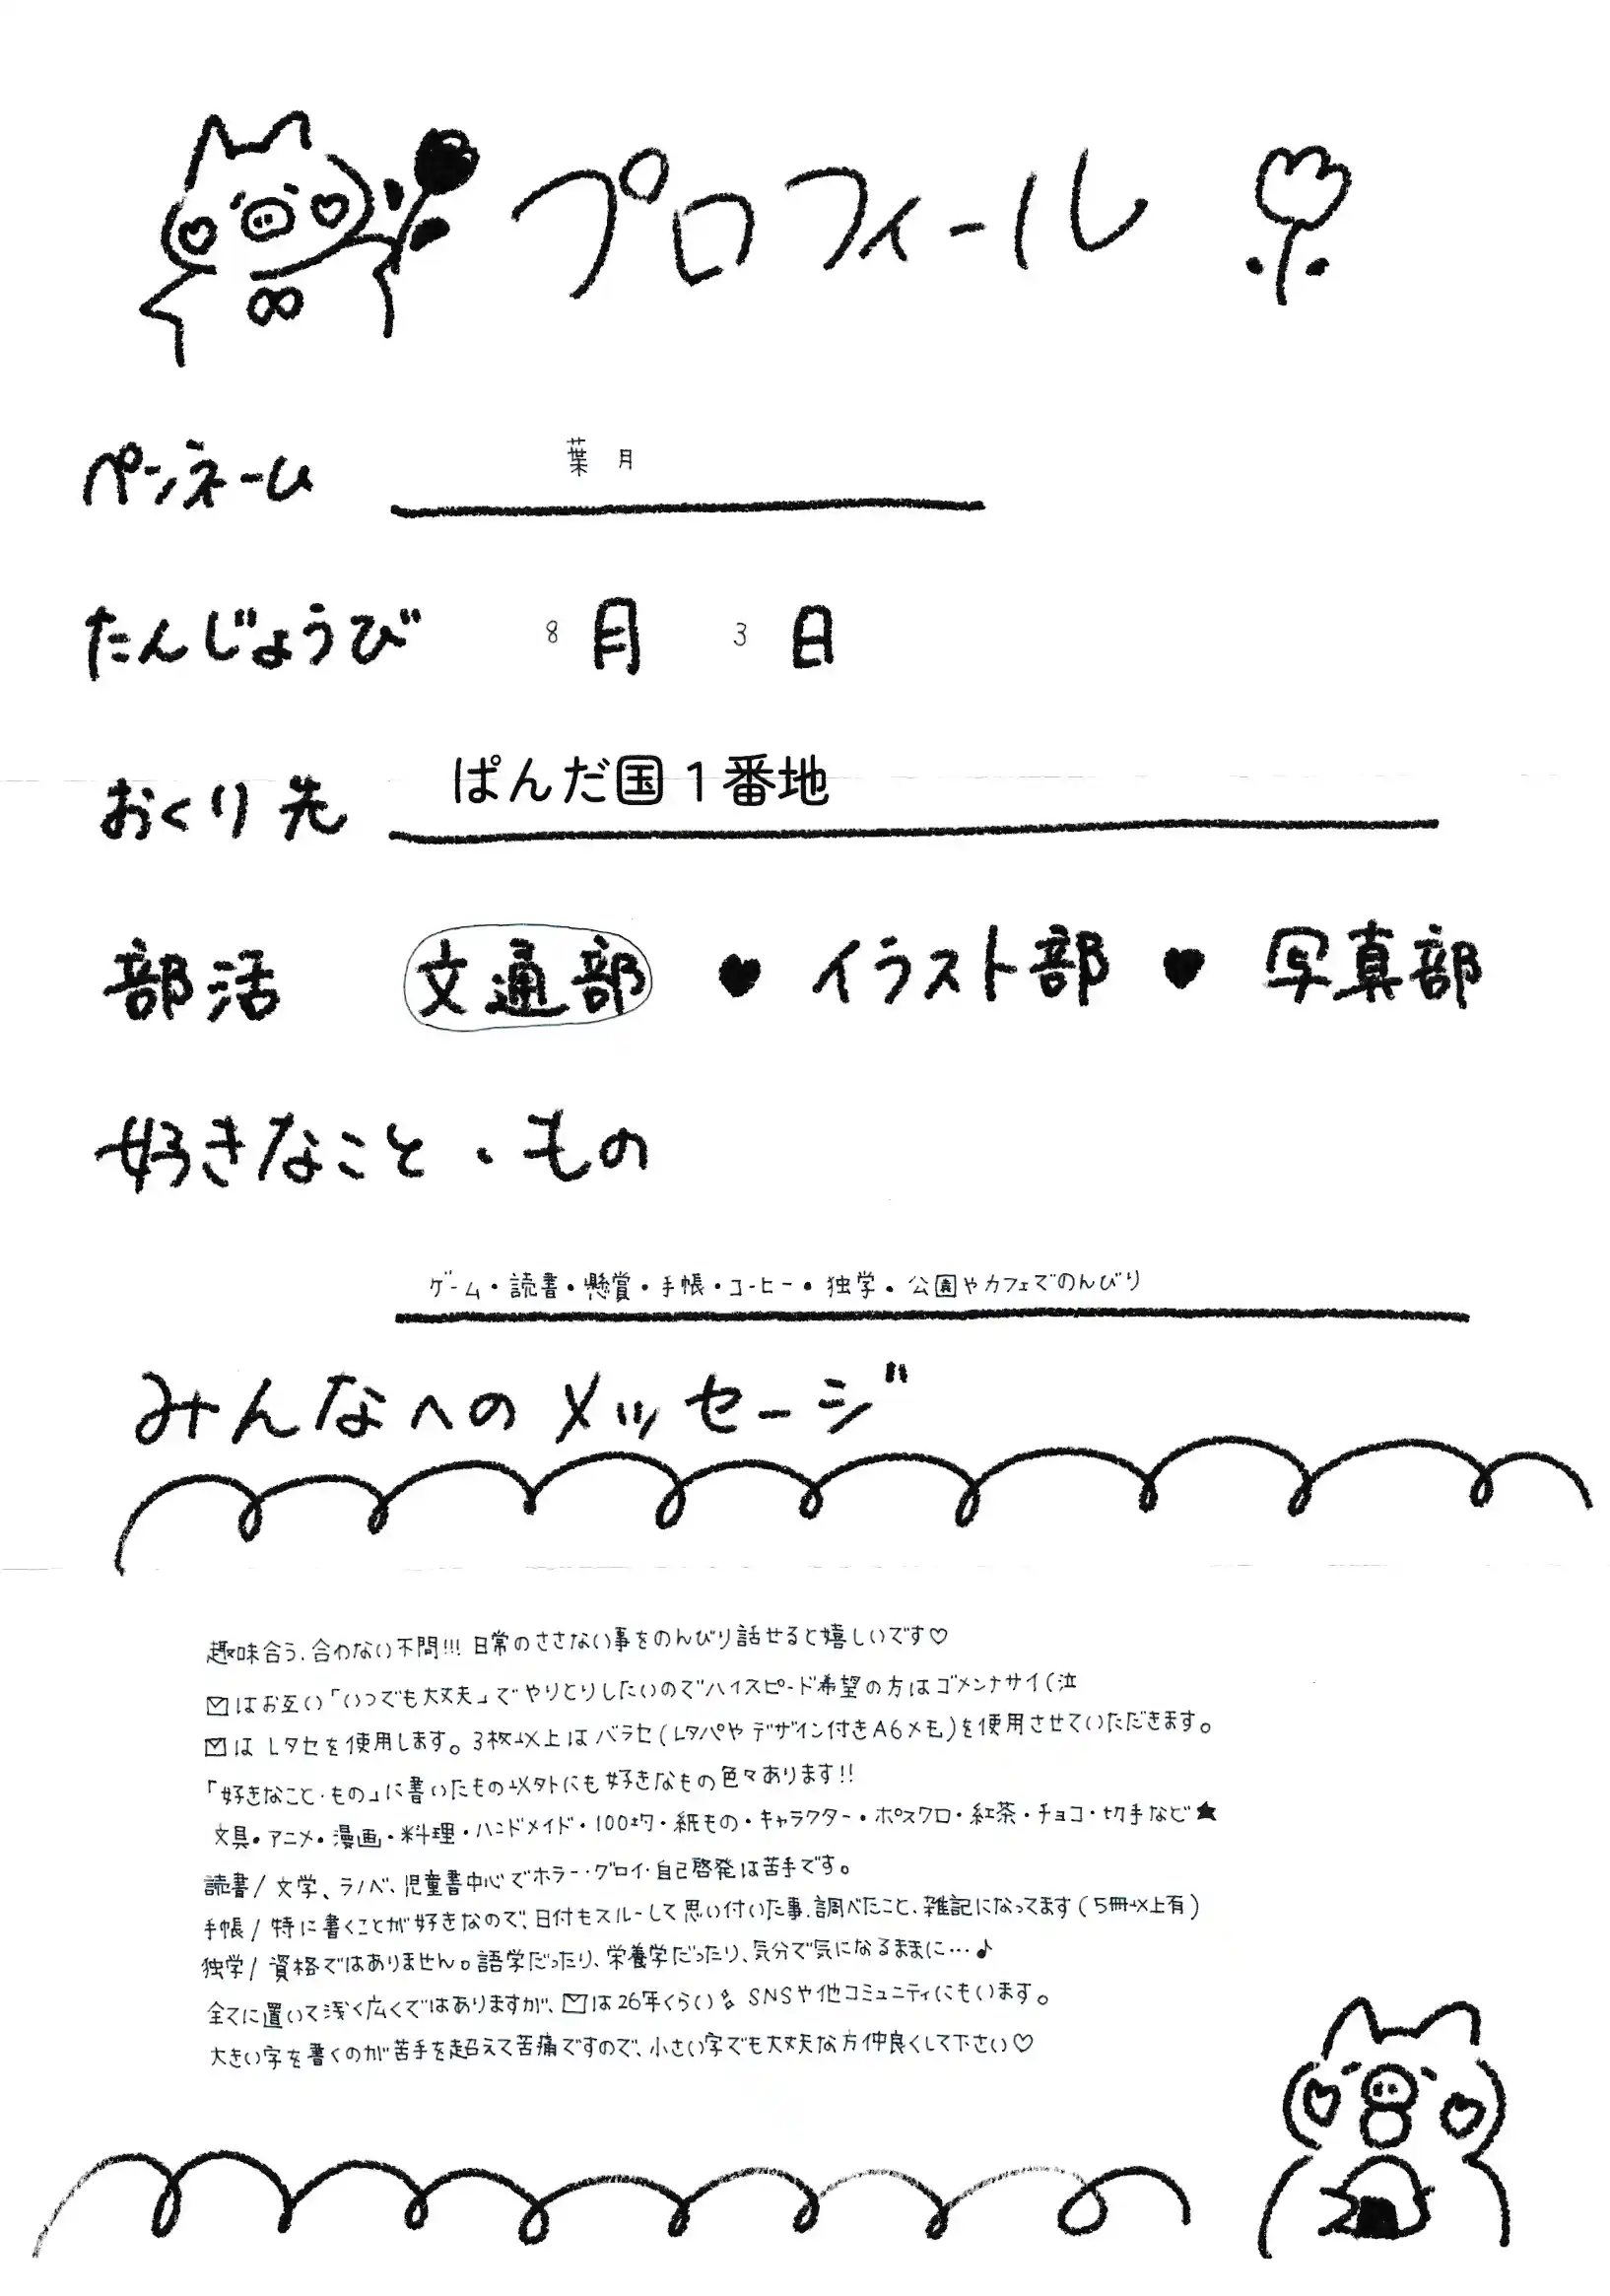 プロフィール
ペンネーム 葉月
たんじょうび 8月 3日
おくり先 ぱんだ国1番地
部活 文通部 ♥ イラスト部 ♥ 写真部
好きなこと・もの
ゲーム・読書・懸賞・手帳・コーヒー・独学・公園やカフェでのんびり
みんなへのメッセージ
趣味合う、合わない不問!!! 日常のささない事をのんびり話せると嬉しいです♡
✉はお互い「いつでも大丈夫」でやりとりしたいのでハイスピード希望の方はゴメンナサイ(泣
✉は レタセを使用します。3枚以上は バラセ(レタパや デザイン付きA6メモ)を使用させていただきます。
「好きなこと・もの」に書いたもの以外にも好きなもの色々あります!!
文具・アニメ・漫画・料理・ハンドメイド・100均・紙もの・キャラクター・ポスクロ・紅茶・チョコ・切手など★
読書/ 文学、ラノベ、児童書中心でホラー・グロイ・自己啓発は苦手です。
手帳/ 特に書くことが好きなので、日付もスルーして思い付いた事、調べたこと、雑記になってます(5冊以上有)
独学/ 資格ではありません。語学だったり、栄養学だったり、気分で気になるままに…♪
全てに置いて浅く広くではありますが、✉は26年くらい SNSや他コミュニティにもいます。
大きい字を書くのが苦手を超えて苦痛ですので、小さい字でも大丈夫な方仲良くして下さい♡